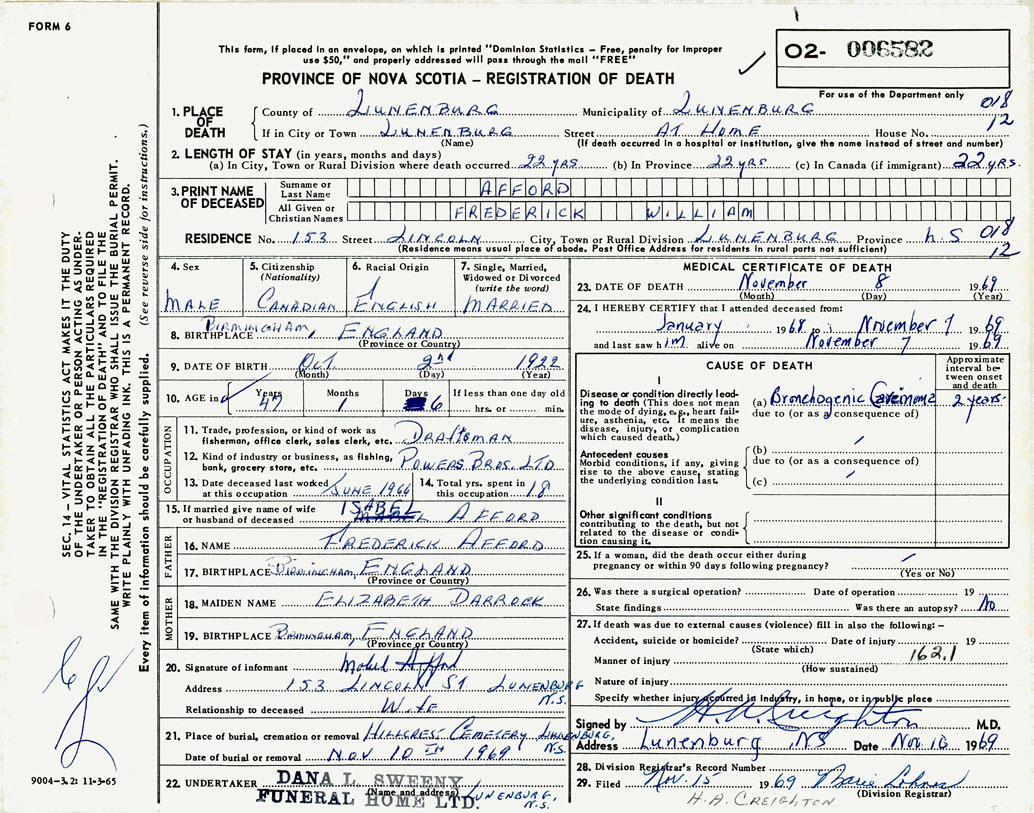 FORM 6
02- 006582
This form, if placed in an envelope, on which is printed "Dominion Statistics – Free, penalty for improper
use $50," and properly addressed will pass through the mail "FREE"
PROVINCE OF NOVA SCOTIA – REGISTRATION OF DEATH
For use of the Department only
018
12
1. PLACE OF DEATH
County of LUNENBURG Municipality of LUNENBURG
If in City or Town LUNENBURG Street AT HOME House No.
(Name) (If death occurred in a hospital or institution, give the name instead of street and number)
2. LENGTH OF STAY (in years, months and days)
(a) In City, Town or Rural Division where death occurred 22 YRS (b) In Province 22 YRS (c) In Canada (if immigrant) 22 YRS.
3. PRINT NAME OF DECEASED
Surname or Last Name AFFORD
All Given or Christian Names FREDERICK WILLIAM
RESIDENCE No. 153 Street LINCOLN City, Town or Rural Division LUNENBURG Province N.S
018
12
(Residence means usual place of abode. Post Office Address for residents in rural parts not sufficient)
4. Sex
MALE
5. Citizenship
(Nationality)
CANADIAN
6. Racial Origin
ENGLISH
7. Single, Married,
Widowed or Divorced
(write the word)
MARRIED
8. BIRTHPLACE BIRMINGHAM, ENGLAND
(Province or Country)
9. DATE OF BIRTH Oct. 2nd 1922
(Month) (Day) (Year)
10. AGE in
Years 47
Months 1
Days 6
If less than one day old
hrs. or min.
OCCUPATION
11. Trade, profession, or kind of work as
fisherman, office clerk, sales clerk, etc. DRAFTSMAN
12. Kind of industry or business, as fishing,
bank, grocery store, etc. POWERS BROS. LTD
13. Date deceased last worked
at this occupation JUNE 1966
14. Total yrs. spent in
this occupation 18
15. If married give name of wife
or husband of deceased ISABEL AFFORD
FATHER
16. NAME FREDERICK AFFORD
17. BIRTHPLACE Birmingham, ENGLAND
(Province or Country)
MOTHER
18. MAIDEN NAME ELIZABETH DARROCK
19. BIRTHPLACE Birmingham, ENGLAND
(Province or Country)
20. Signature of informant Mabel Afford
Address 153 LINCOLN ST LUNENBURG
N.S.
Relationship to deceased Wife
21. Place of burial, cremation or removal HILLCREST CEMETERY LUNENBURG,
N.S.
Date of burial or removal NOV 10TH 1969
22. UNDERTAKER DANA L. SWEENY
(Name and address)
FUNERAL HOME LTD. LUNENBURG,
N.S.
MEDICAL CERTIFICATE OF DEATH
23. DATE OF DEATH November 8 1969
(Month) (Day) (Year)
24. I HEREBY CERTIFY that I attended deceased from:
January 1968 to November 7 1969
and last saw him alive on November 7 1969
CAUSE OF DEATH
Approximate
interval be-
tween onset
and death
I
Disease or condition directly lead-
ing to death (This does not mean
the mode of dying, e.g., heart fail-
ure, asthenia, etc. It means the
disease, injury, or complication
which caused death.)
(a) Bronchogenic Carcinoma 2 years.
due to (or as a consequence of)
Antecedent causes
Morbid conditions, if any, giving
rise to the above cause, stating
the underlying condition last.
(b)
due to (or as a consequence of)
(c)
II
Other significant conditions
contributing to the death, but not
related to the disease or condi-
tion causing it.
25. If a woman, did the death occur either during
pregnancy or within 90 days following pregnancy?
(Yes or No)
26. Was there a surgical operation? Date of operation 19
State findings Was there an autopsy? No
27. If death was due to external causes (violence) fill in also the following: –
Accident, suicide or homicide? Date of injury 19
(State which)
162.1
Manner of injury
(How sustained)
Nature of injury
Specify whether injury occurred in industry, in home, or in public place
Signed by H.A. Creighton M.D.
Address Lunenburg, NS Date Nov. 10 1969
28. Division Registrar's Record Number
29. Filed Nov. 15 1969
(Division Registrar)
H.A. CREIGHTON
SEC. 14 – VITAL STATISTICS ACT MAKES IT THE DUTY
OF THE UNDERTAKER OR PERSON ACTING AS UNDER-
TAKER TO OBTAIN ALL THE PARTICULARS REQUIRED
IN THE "REGISTRATION OF DEATH" AND TO FILE THE
SAME WITH THE DIVISION REGISTRAR WHO SHALL ISSUE THE BURIAL PERMIT.
WRITE PLAINLY WITH UNFADING INK. THIS IS A PERMANENT RECORD.
Every item of information should be carefully supplied. (See reverse side for instructions.)
9004-3.2: 11-3-65